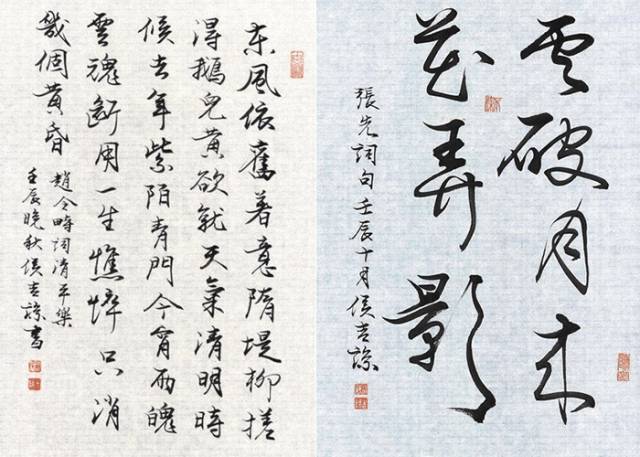 雲破月來
花弄影
張先詞句壬辰十月侯吉諒
東風依舊著意隋堤柳搓
得鵝兒黃欲就天氣清明時
候去年紫陌青門今宵雨魄
雲魂斷用一生憔悴只消
幾個黃昏
趙令畤詞清平樂
壬辰晚秋侯吉諒書